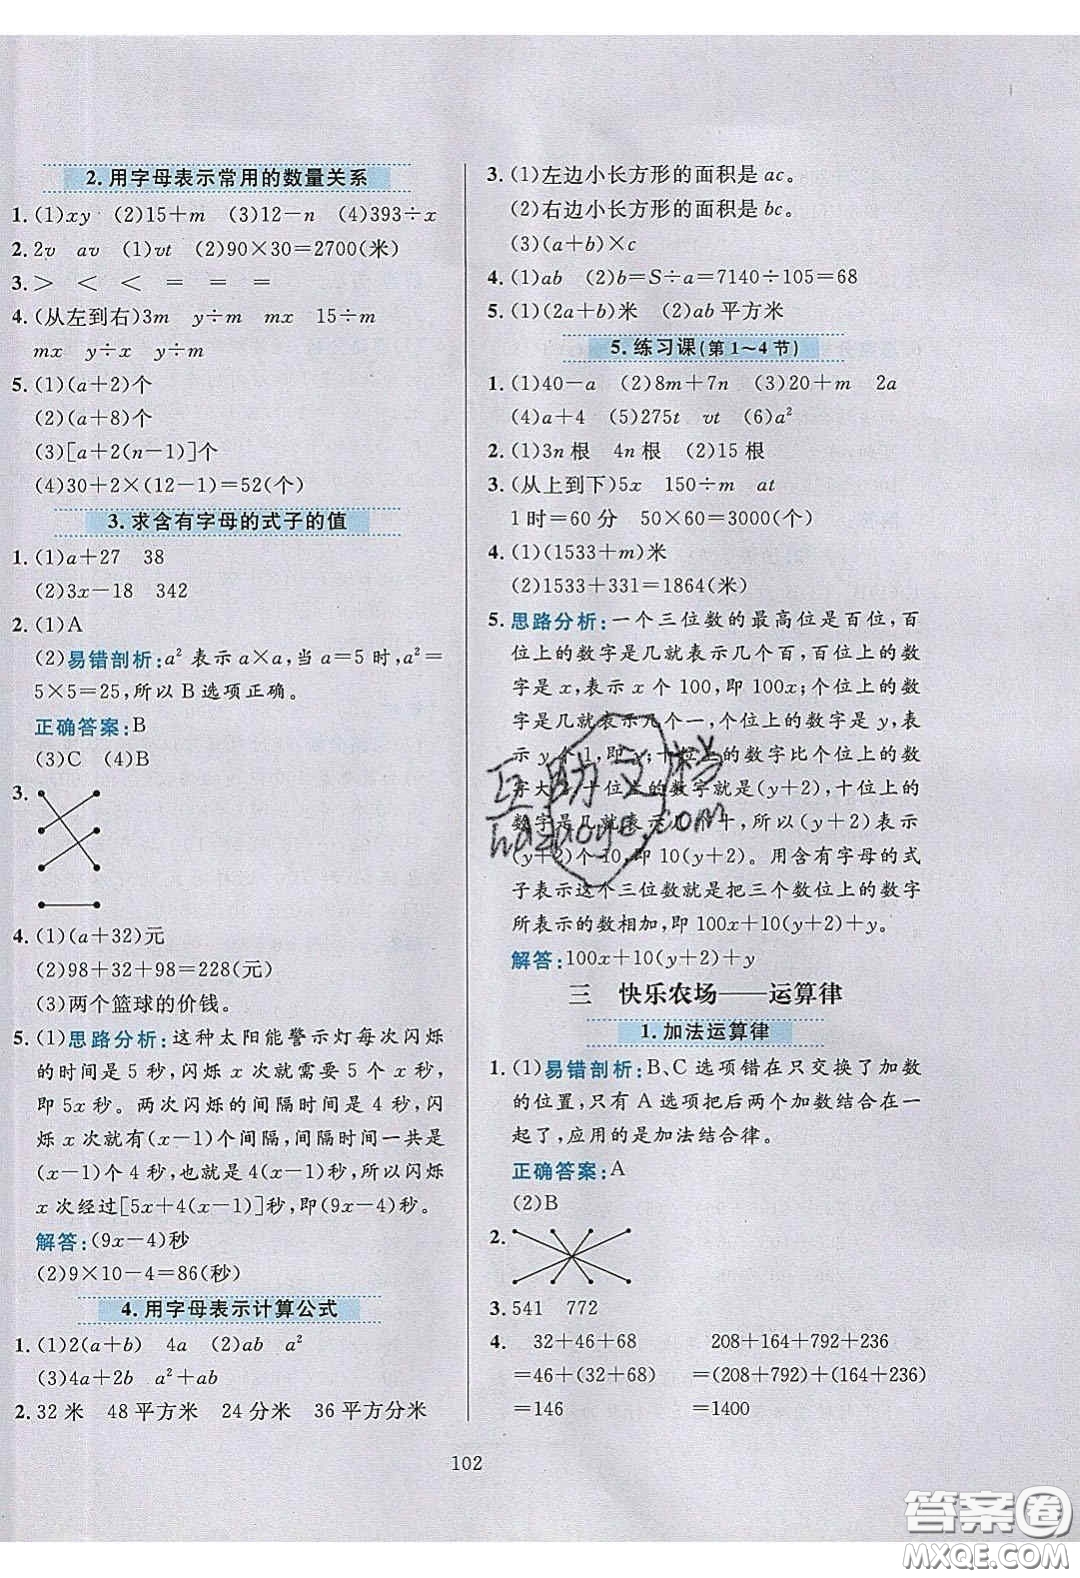 2.用字母表示常用的数量关系
1.(1)xy (2)15+m (3)12-n (4)393÷x
2.2v av (1)vt (2)90×30=2700(米)
3.> < < = = =
4.(从左到右)3m y÷m mx 15÷m
mx y÷x y÷m
5.(1)(a+2)个
(2)(a+8)个
(3)[a+2(n-1)]个
(4)30+2×(12-1)=52(个)
3.求含有字母的式子的值
1.(1)a+27 38
(2)3x-18 342
2.(1)A
(2)易错剖析:a²表示a×a,当a=5时,a²=
5×5=25,所以B选项正确。
正确答案:B
(3)C (4)B
3.
4.(1)(a+32)元
(2)98+32+98=228(元)
(3)两个篮球的价钱。
5.(1)思路分析:这种太阳能警示灯每次闪烁
的时间是5秒,闪烁x次的时间是5个x秒,
即5x秒。两次闪烁的间隔时间是4秒,闪
烁x次就有(x-1)个间隔,间隔时间一共是
(x-1)个4秒,也就是4(x-1)秒,所以闪烁
x次经过[5x+4(x-1)]秒,即(9x-4)秒。
解答:(9x-4)秒
(2)9×10-4=86(秒)
4.用字母表示计算公式
1.(1)2(a+b) 4a (2)ab a²
(3)4a+2b a²+ab
2.32米 48平方米 24分米 36平方分米
3.(1)左边小长方形的面积是ac。
(2)右边小长方形的面积是bc。
(3)(a+b)×c
4.(1)ab (2)b=S÷a=7140÷105=68
5.(1)(2a+b)米 (2)ab平方米
5.练习课(第1~4节)
1.(1)40-a (2)8m+7n (3)20+m 2a
(4)a+4 (5)275t vt (6)a²
2.(1)3n根 4n根 (2)15根
3.(从上到下)5x 150÷m at
1时=60分 50×60=3000(个)
4.(1)(1533+m)米
(2)1533+331=1864(米)
5.思路分析:一个三位数的最高位是百位,百
位上的数字是几就表示几个百,百位上的数
字是x,表示x个100,即100x;个位上的数
字是几就表示几个一,个位上的数字是y,表
示y个1,即y;十位上的数字比个位上的数
字大2,十位上的数字就是(y+2),十位上的
数字是几就表示几个十,所以(y+2)表示
(y+2)个10,即10(y+2)。用含有字母的式
子表示这个三位数就是把三个数位上的数字
所表示的数相加,即100x+10(y+2)+y。
解答:100x+10(y+2)+y
三 快乐农场——运算律
1.加法运算律
1.(1)易错剖析:B、C选项错在只交换了加数
的位置,只有A选项把后两个加数结合在一
起了,应用的是加法结合律。
正确答案:A
(2)B
2.
3.541 772
4. 32+46+68 208+164+792+236
=46+(32+68) =(208+792)+(164+236)
=146 =1400
102
互助文档
hdzuoye.com
答案圈
MXQE.COM